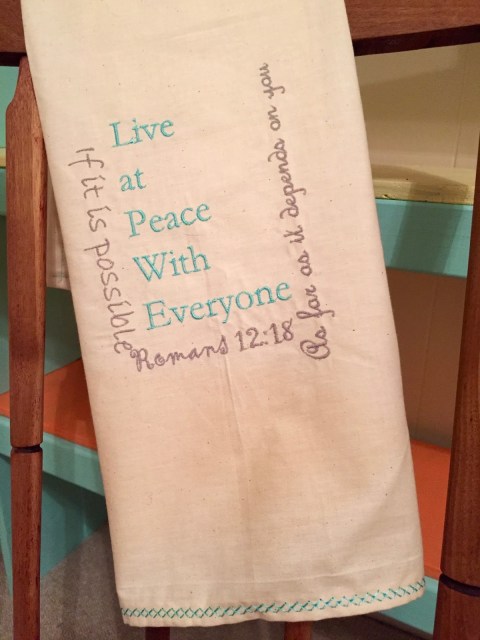 If it is possible
Live
at
Peace
With
Everyone
As far as it depends on you
Romans 12:18